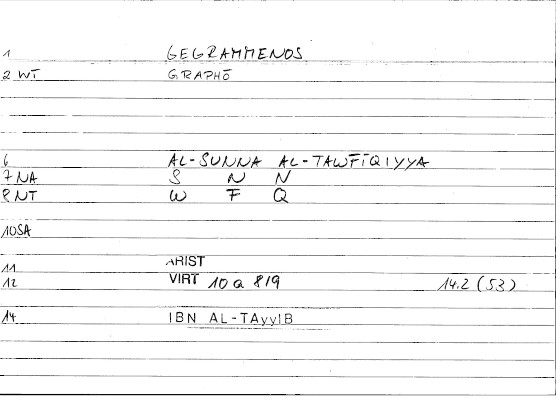 1 GEGRAMMENOS
2 WT GRAPHŌ
6 AL-SUNNA AL-TAWFĪQIYYA
7 NA S N N
8 NT W F Q
10SA
11 ARIST
12 VIRT 10 a 8/9 14.2 (53)
14 IBN AL-TAyyIB